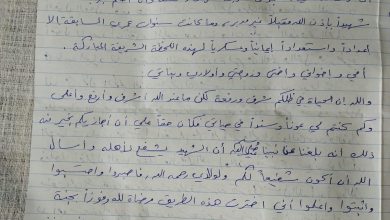 شهيداً بإذن الله مقبلاً غير مدبر وما كانت سنون عمري السابقة إلا
إعداداً واستعداداً إيمانياً وعسكرياً لهذه اللحظة الشريفة المباركة.
أمي وإخواني وأختي وزوجتي وأولادي وبناتي
والله إن الحياة في ظلكم شرف ورفعة لكن ما عند الله أشرف وأرفع وأعلى
وكم كنتم لي عوناً وسنداً في حياتي فكان حقاً علي أن أجازيكم بخير من
ذلك أنه بلغنا عن نبينا أن الشهيد يشفع لأهله وأسأل
الله أن أكون شفيعاً لكم ولوالدي رحمه الله. فاصبروا واحتسبوا
واثبتوا واعلموا أني اخترت هذا الطريق مرضاة لله وفوزاً بجنة